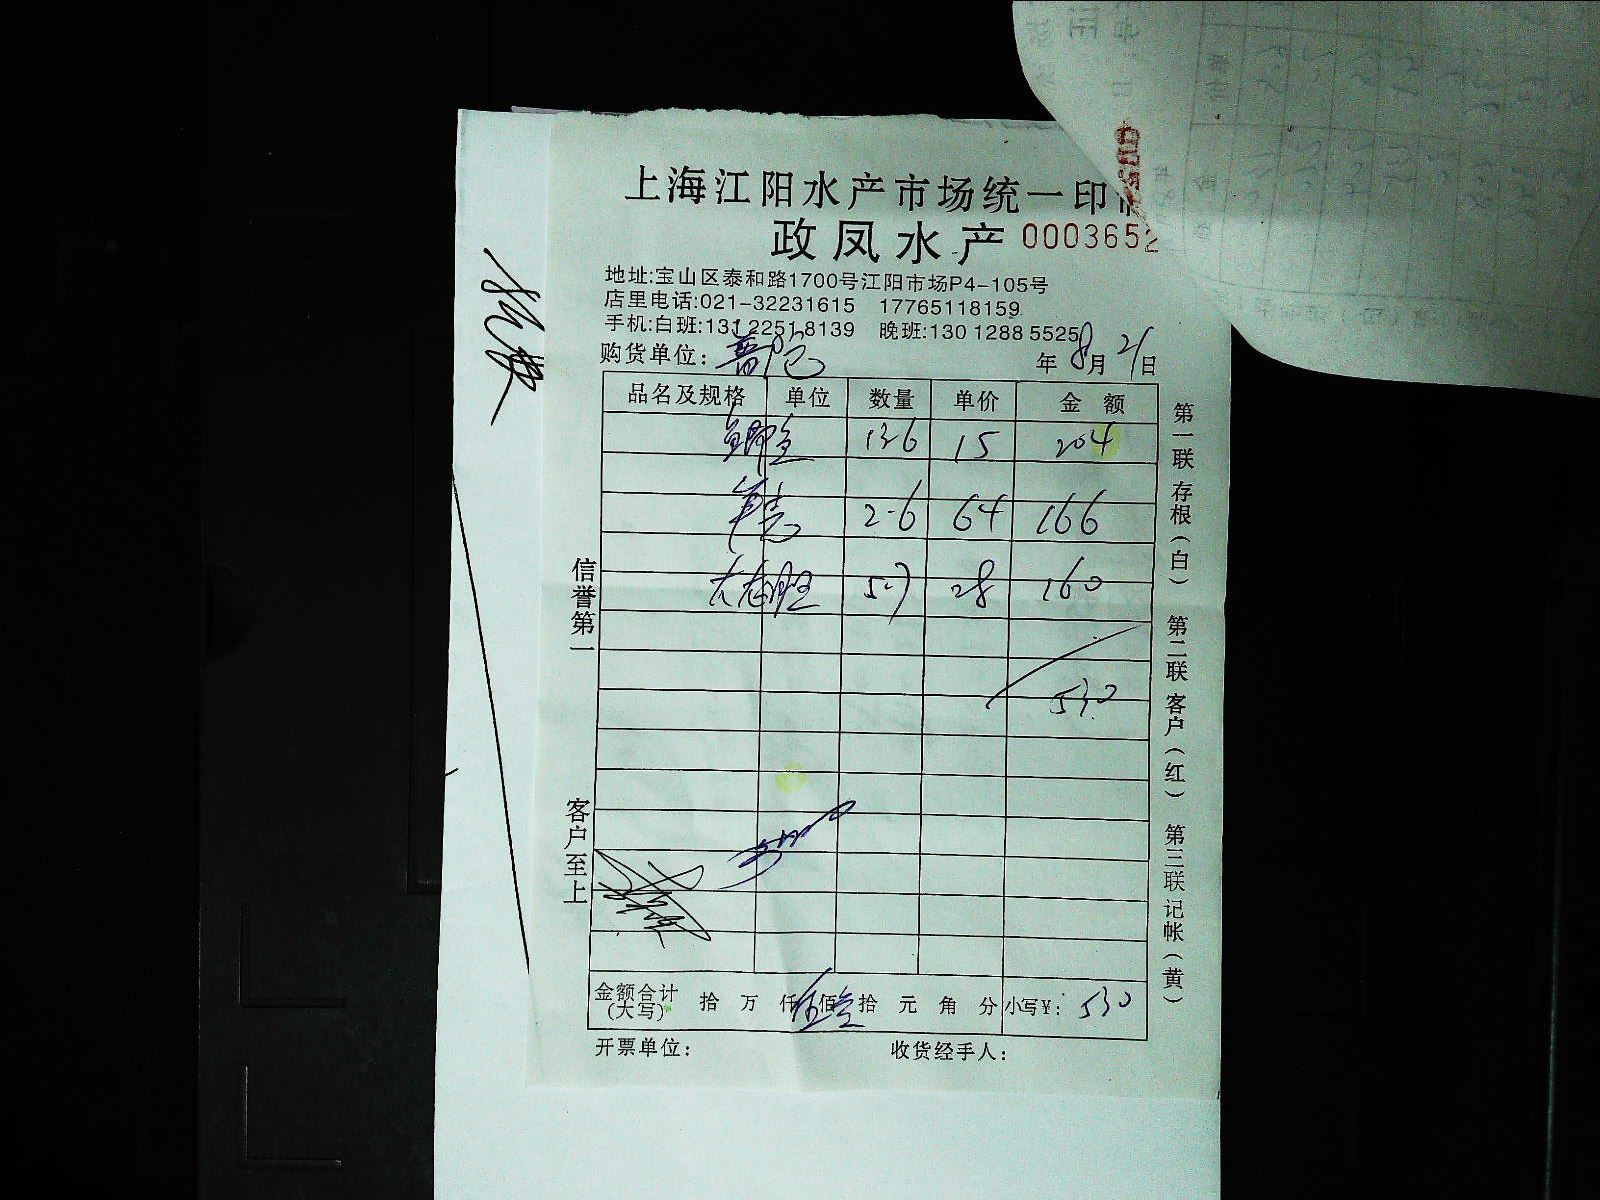 上海江阳水产市场统一印
政凤水产 0003652
地址:宝山区泰和路1700号江阳市场P4-105号
店里电话:021-32231615 17765118159
手机:白班:131 2251 8139 晚班:130 1288 5525
购货单位: 年 8月 21日
品名及规格 单位 数量 单价 金额
鲫鱼 13.6 15 204
2.6 64 166
5.7 28 160
530
金额合计 拾 万 仟 伍佰叁拾 元 角 分 小写¥: 530
(大写)
开票单位: 收货经手人:
信誉第一
客户至上
第一联 存根(白) 第二联 客户(红) 第三联 记帐(黄)